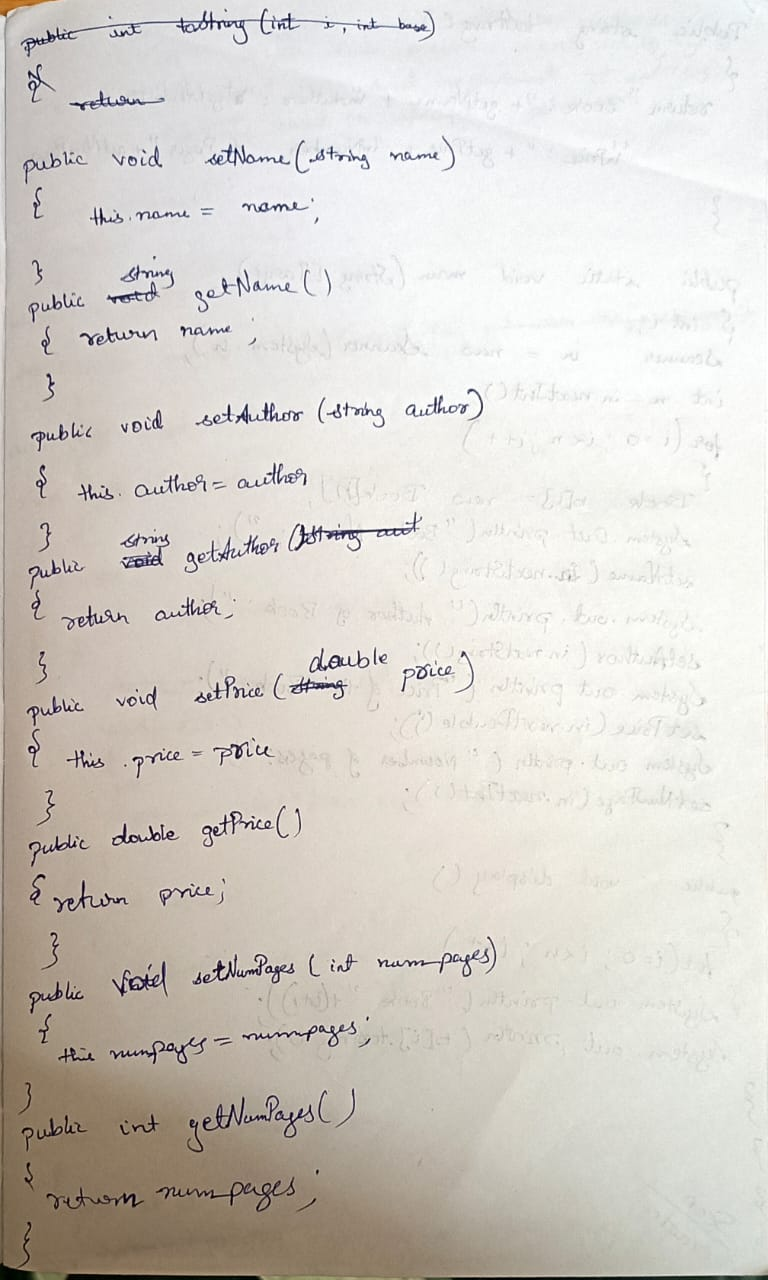 public int toString (int i, int base)
{
return
public void setName (string name)
{ this.name = name;
}
public void string getName ()
{ return name ;
}
public void setAuthor (string author)
{ this. author = author
}
public void string getAuthor (string aut
{ return author;
}
public void setPrice (string double price)
{ this .price = price
}
public double getPrice()
{ return price;
}
public void setNumPages (int num_pages)
{
this numpages = numpages;
}
public int getNumPages()
{
return numpages;
}